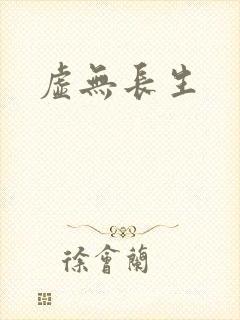 虛無長生
徐會蘭